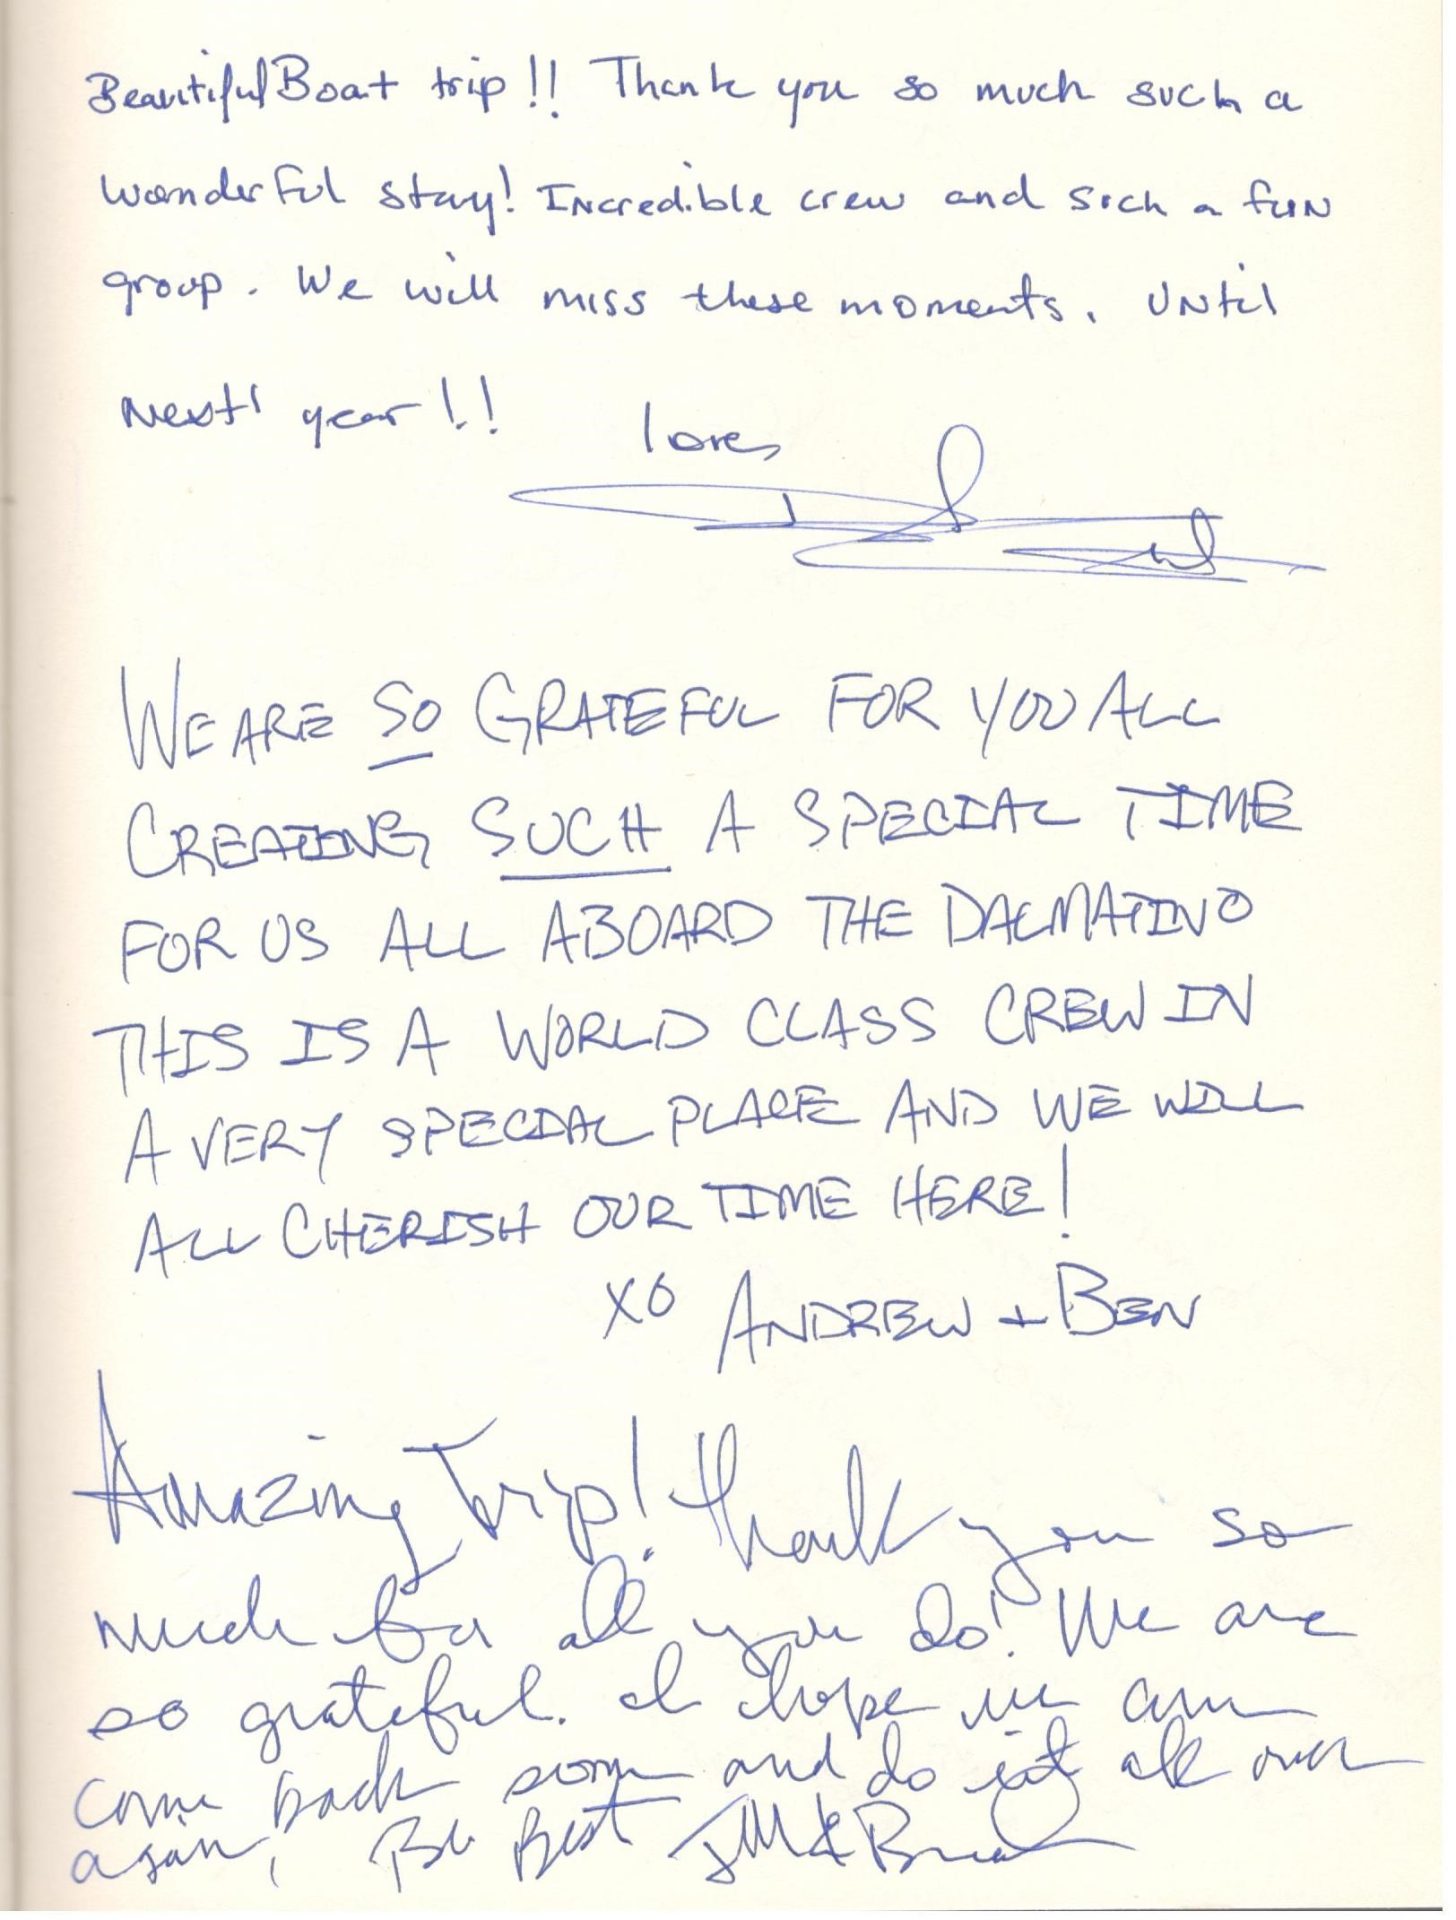 Beautiful Boat trip!! Thank you so much such a
wonderful stay! Incredible crew and such a fun
group. We will miss these moments. Until
Next year!! love,
WE ARE SO GRATEFUL FOR YOU ALL
CREATING SUCH A SPECIAL TIME
FOR US ALL ABOARD THE DALMATINO
THIS IS A WORLD CLASS CREW IN
A VERY SPECIAL PLACE AND WE WILL
ALL CHERISH OUR TIME HERE!
XO ANDREW + BEN
Amazing Trip! Thank you so
much for all you do! We are
so grateful. I hope we can
come back soon and do it all over
again, Best